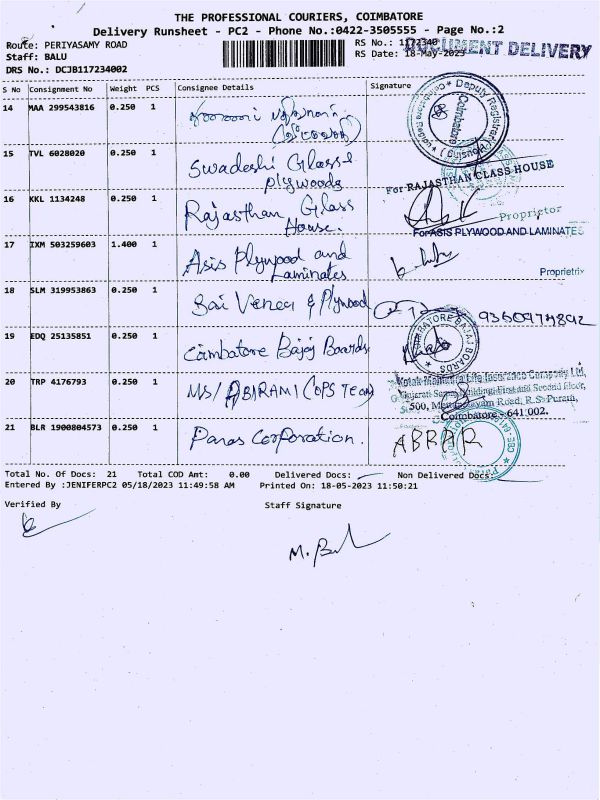 THE PROFESSIONAL COURIERS, COIMBATORE
Delivery Runsheet - PC2 - Phone No.:0422-3505555 - Page No.:2
Route: PERIYASAMY ROAD
Staff: BALU
DRS No.: DCJB117234002
RS No.: 1172340
RS Date: 18-May-2023
DOCUMENT DELIVERY
S No Consignment No Weight PCS Consignee Details Signature
14 MAA 299543816 0.250 1
Deputy Registrar (Housing) Coimbatore
15 TVL 6028020 0.250 1 Swadeshi Glass &
Plywoods
For RAJASTHAN GLASS HOUSE
16 KKL 1134248 0.250 1 Rajasthan Glass
House.
Proprietor
For ASIS PLYWOOD AND LAMINATES
17 IXM 503259603 1.400 1 Asis Plywood and
Laminates
Proprietrix
18 SLM 319953863 0.250 1 Sai Veneer & Plywood
19 EDQ 25135851 0.250 1 Coimbatore Bajaj Boards
COIMBATORE BAJAJ BOARDS
20 TRP 4176793 0.250 1 Ms/ ABIRAMI (OPS TEAM)
Kotak Mahindra Life Insurance Company Ltd,
Building First and Second Floor,
500, Road, R.S. Puram,
Coimbatore - 641 002.
21 BLR 1900804573 0.250 1 Paras Corporation.
ABRAR
Total No. Of Docs: 21 Total COD Amt: 0.00 Delivered Docs: Non Delivered Docs:
Entered By :JENIFERPC2 05/18/2023 11:49:58 AM Printed On: 18-05-2023 11:50:21
Verified By Staff Signature